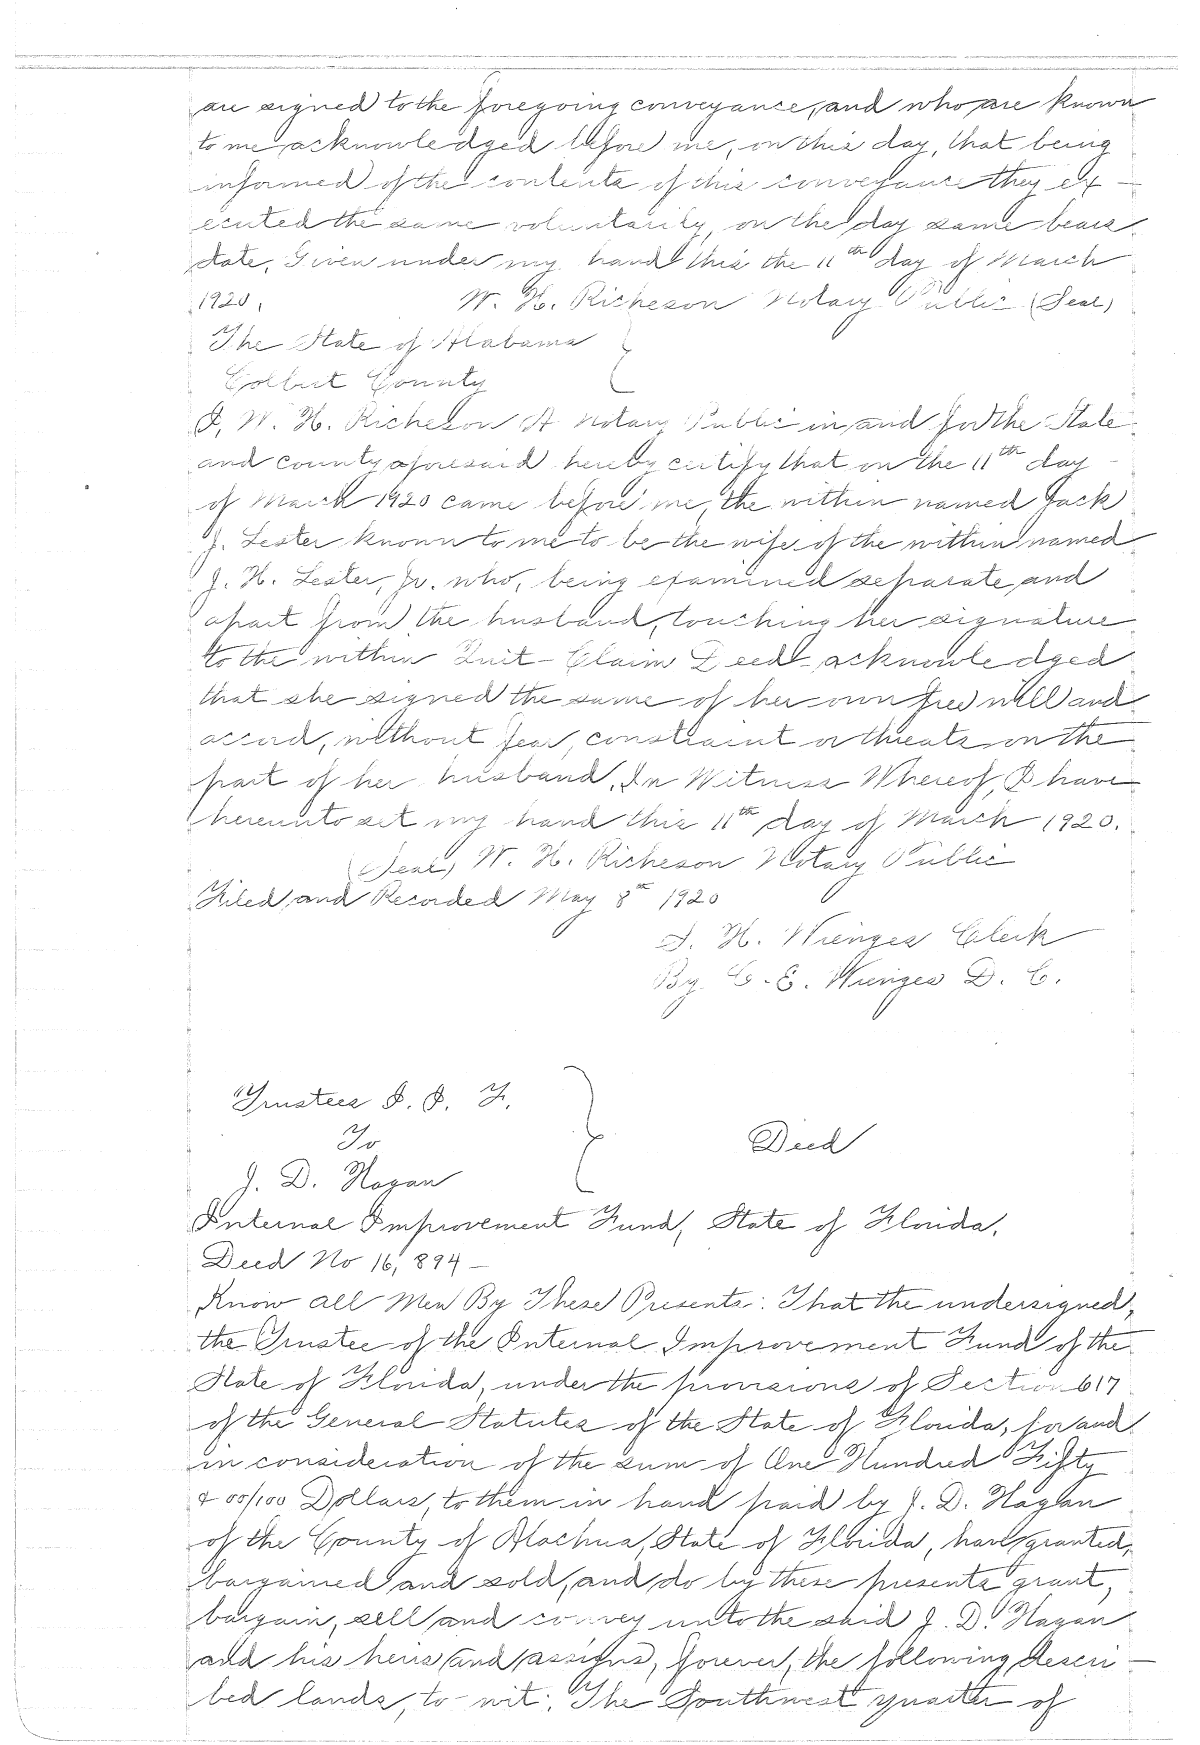 are signed to the foregoing conveyance, and who are known
to me acknowledged before me, on this day, that being
informed of the contents of this conveyance they ex-
ecuted the same voluntarily, on the day same bears
date. Given under my hand this the 11th day of March
1920. W. H. Richeson Notary Public (Seal)
The State of Alabama
Colbert County
I, W. H. Richeson A Notary Public in and for the State
and county aforesaid hereby certify that on the 11th day
of March 1920 came before me, the within named Jack
J. Lester known to me to be the wife of the within named
J. H. Lester, Jr. who, being examined separate and
apart from the husband, touching her signature
to the within Quit-Claim Deed acknowledged
that she signed the same of her own free will and
accord, without fear, constraint or threats on the
part of her husband. In Witness Whereof, I have
hereunto set my hand this 11th day of March 1920.
(Seal) W. H. Richeson Notary Public
Filed and Recorded May 8th 1920
S. H. Wienges Clerk
By C. E. Wienges D. C.
Trustees I. I. F.
To
Deed
J. D. Hagan
Internal Improvement Fund, State of Florida.
Deed No 16,894-
Know all Men By These Presents: That the undersigned,
the Trustee of the Internal Improvement Fund of the
State of Florida, under the provisions of Section 617
of the General Statutes of the State of Florida, for and
in consideration of the sum of One Hundred Fifty
& 00/100 Dollars, to them in hand paid by J. D. Hagan
of the County of Alachua, State of Florida, have granted,
bargained and sold, and do by these presents grant,
bargain, sell and convey unto the said J. D. Hagan
and his heirs and assigns, forever, the following descri-
bed lands, to-wit: The Southwest quarter of